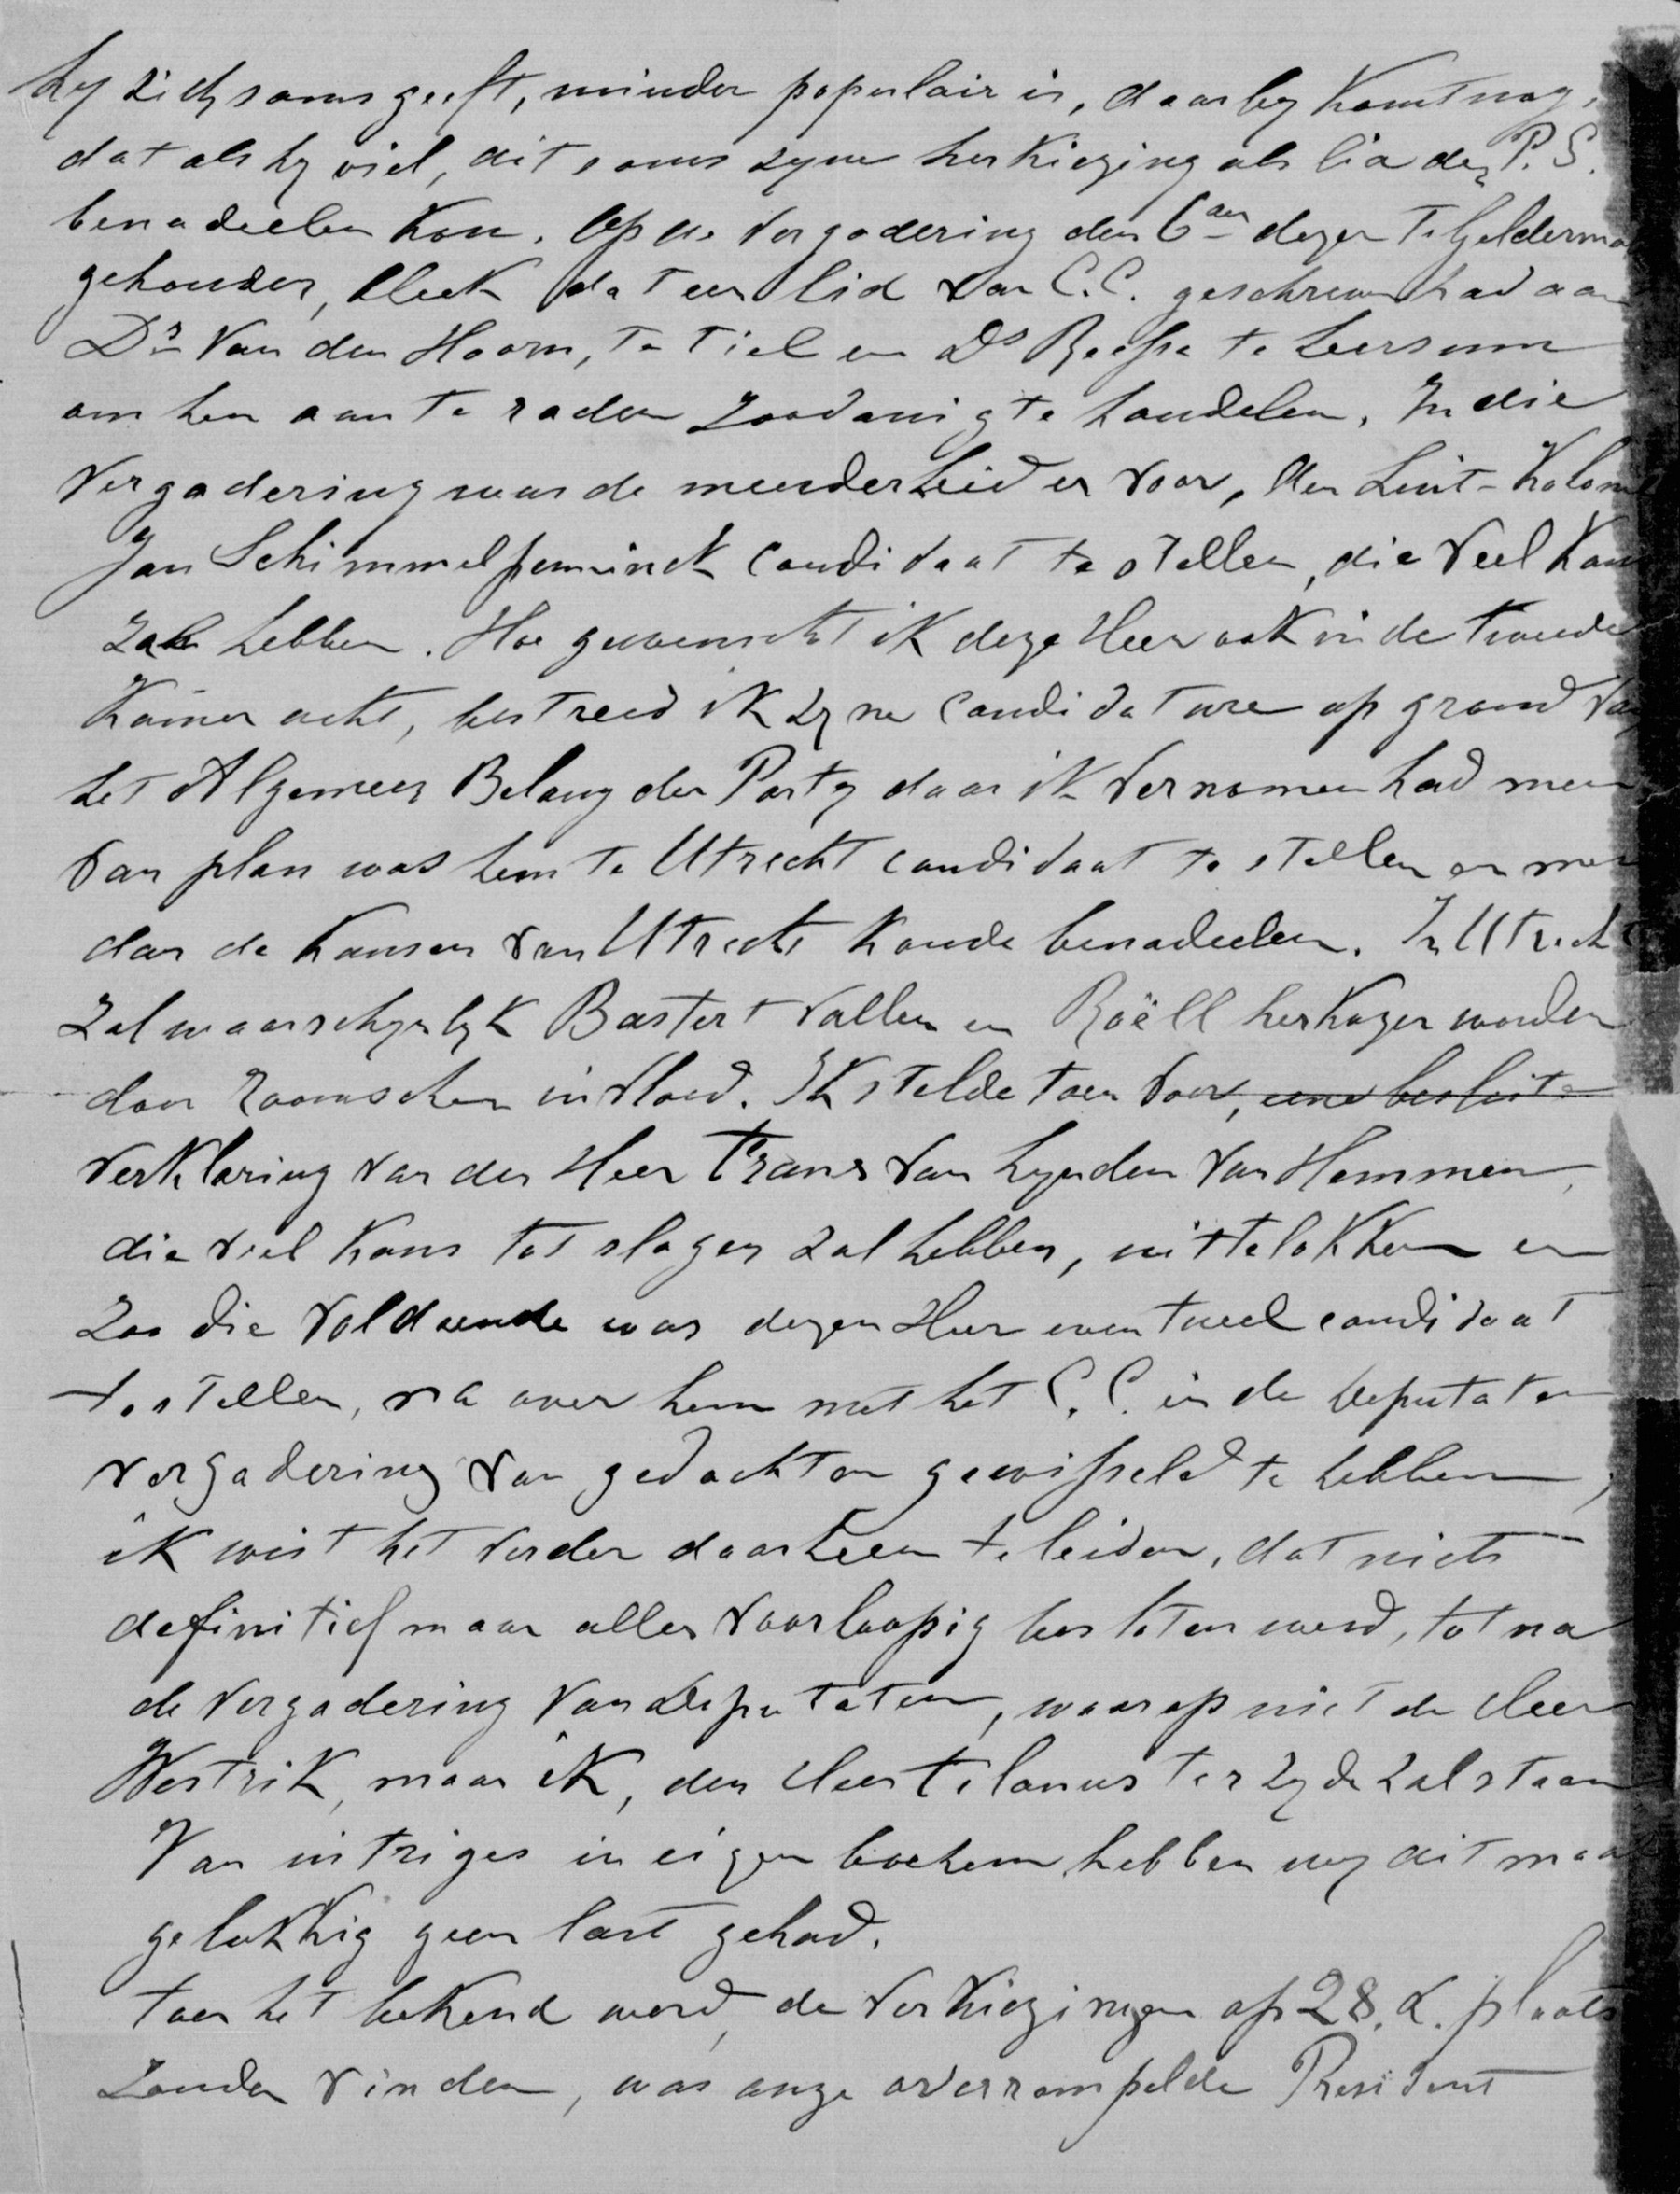 hy zich soms geeft, minder populair is, daarby komt nog,
dat als hy viel, dit soms zyne herkiezing als lid der P. S.
benadeelen kon. Op de Vergadering den 6den dezer te Gelderma
gehouden, bleek dat een lid van C.C. geschreven had aan
Dr Van den Hoorn, te Tiel en Ds te Leersum
om hen aan te raden zoodanig te handelen. In die
Vergadering was de meerderheid er voor, den Luit-Kolonel
Jan Schimmelpenninck Candidaat te stellen, die veel Kans
zal hebben. Hoe gewenscht ik deze Heer ook in de tweede
Kamer acht, bestreed ik zyne Candidature op grond van
het Algemeen Belang der Party daar ik vernomen had men
van plan was hem te Utrecht candidaat te stellen en men
dan de kansen van Utrecht konde benadeelen. In Utrecht
zal waarschynlyk Bastert vallen en Roëll herkozen worden
door Roomschen invloed. Ik stelde toen voor, eene besliste
verklaring van den Heer Frans van Lynden van Hemmen,
die veel kans tot slagen zal hebben, uittelokken en
zoo die voldoende was dezen Heer eventueel candidaat
te stellen, na over hem met het C.C. in de Deputaten
vergadering van gedachten gewisseld te hebben,
ik wist het verder daarheen te leiden, dat niets
definitief maar alles voorloopig besloten werd, tot na
de Vergadering van Deputaten, waarop niet de Heer
Westrik, maar ik, den Heer Tilanus ter zyde zal staan
Van intriges in eigen boezem hebben wy dit maal
gelukkig geen last gehad.
Toen het bekend werd, de Verkiezingen op 28. d. plaats
zouden vinden, was onze overrompelde President